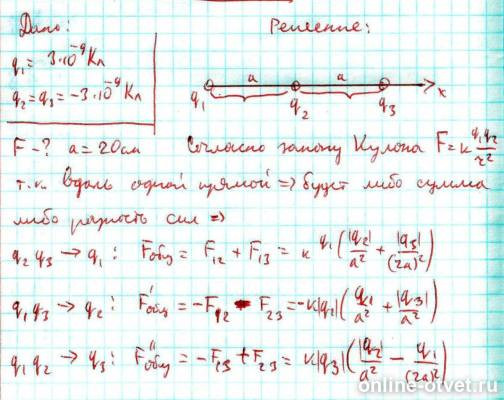 Дано:
Решение:
q₁ = 3·10⁻⁹ Кл
q₂ = q₃ = -3·10⁻⁹ Кл
a a
q₁ q₂ q₃ x
F - ? a = 20 см Согласно закону Кулона F = k q₁q₂/r²
т.к. вдоль одной прямой => будет либо сумма
либо разность сил =>
q₂ q₃ → q₁: Fобщ = F₁₂ + F₁₃ = k q₁ (|q₂|/a² + |q₃|/(2a)²)
q₁ q₃ → q₂: F'общ = -F₁₂ - F₂₃ = -k|q₂| (q₁/a² + |q₃|/a²)
q₁ q₂ → q₃: F''общ = -F₁₃ + F₂₃ = k|q₃| (|q₂|/a² - q₁/(2a)²)
online-otvet.ru